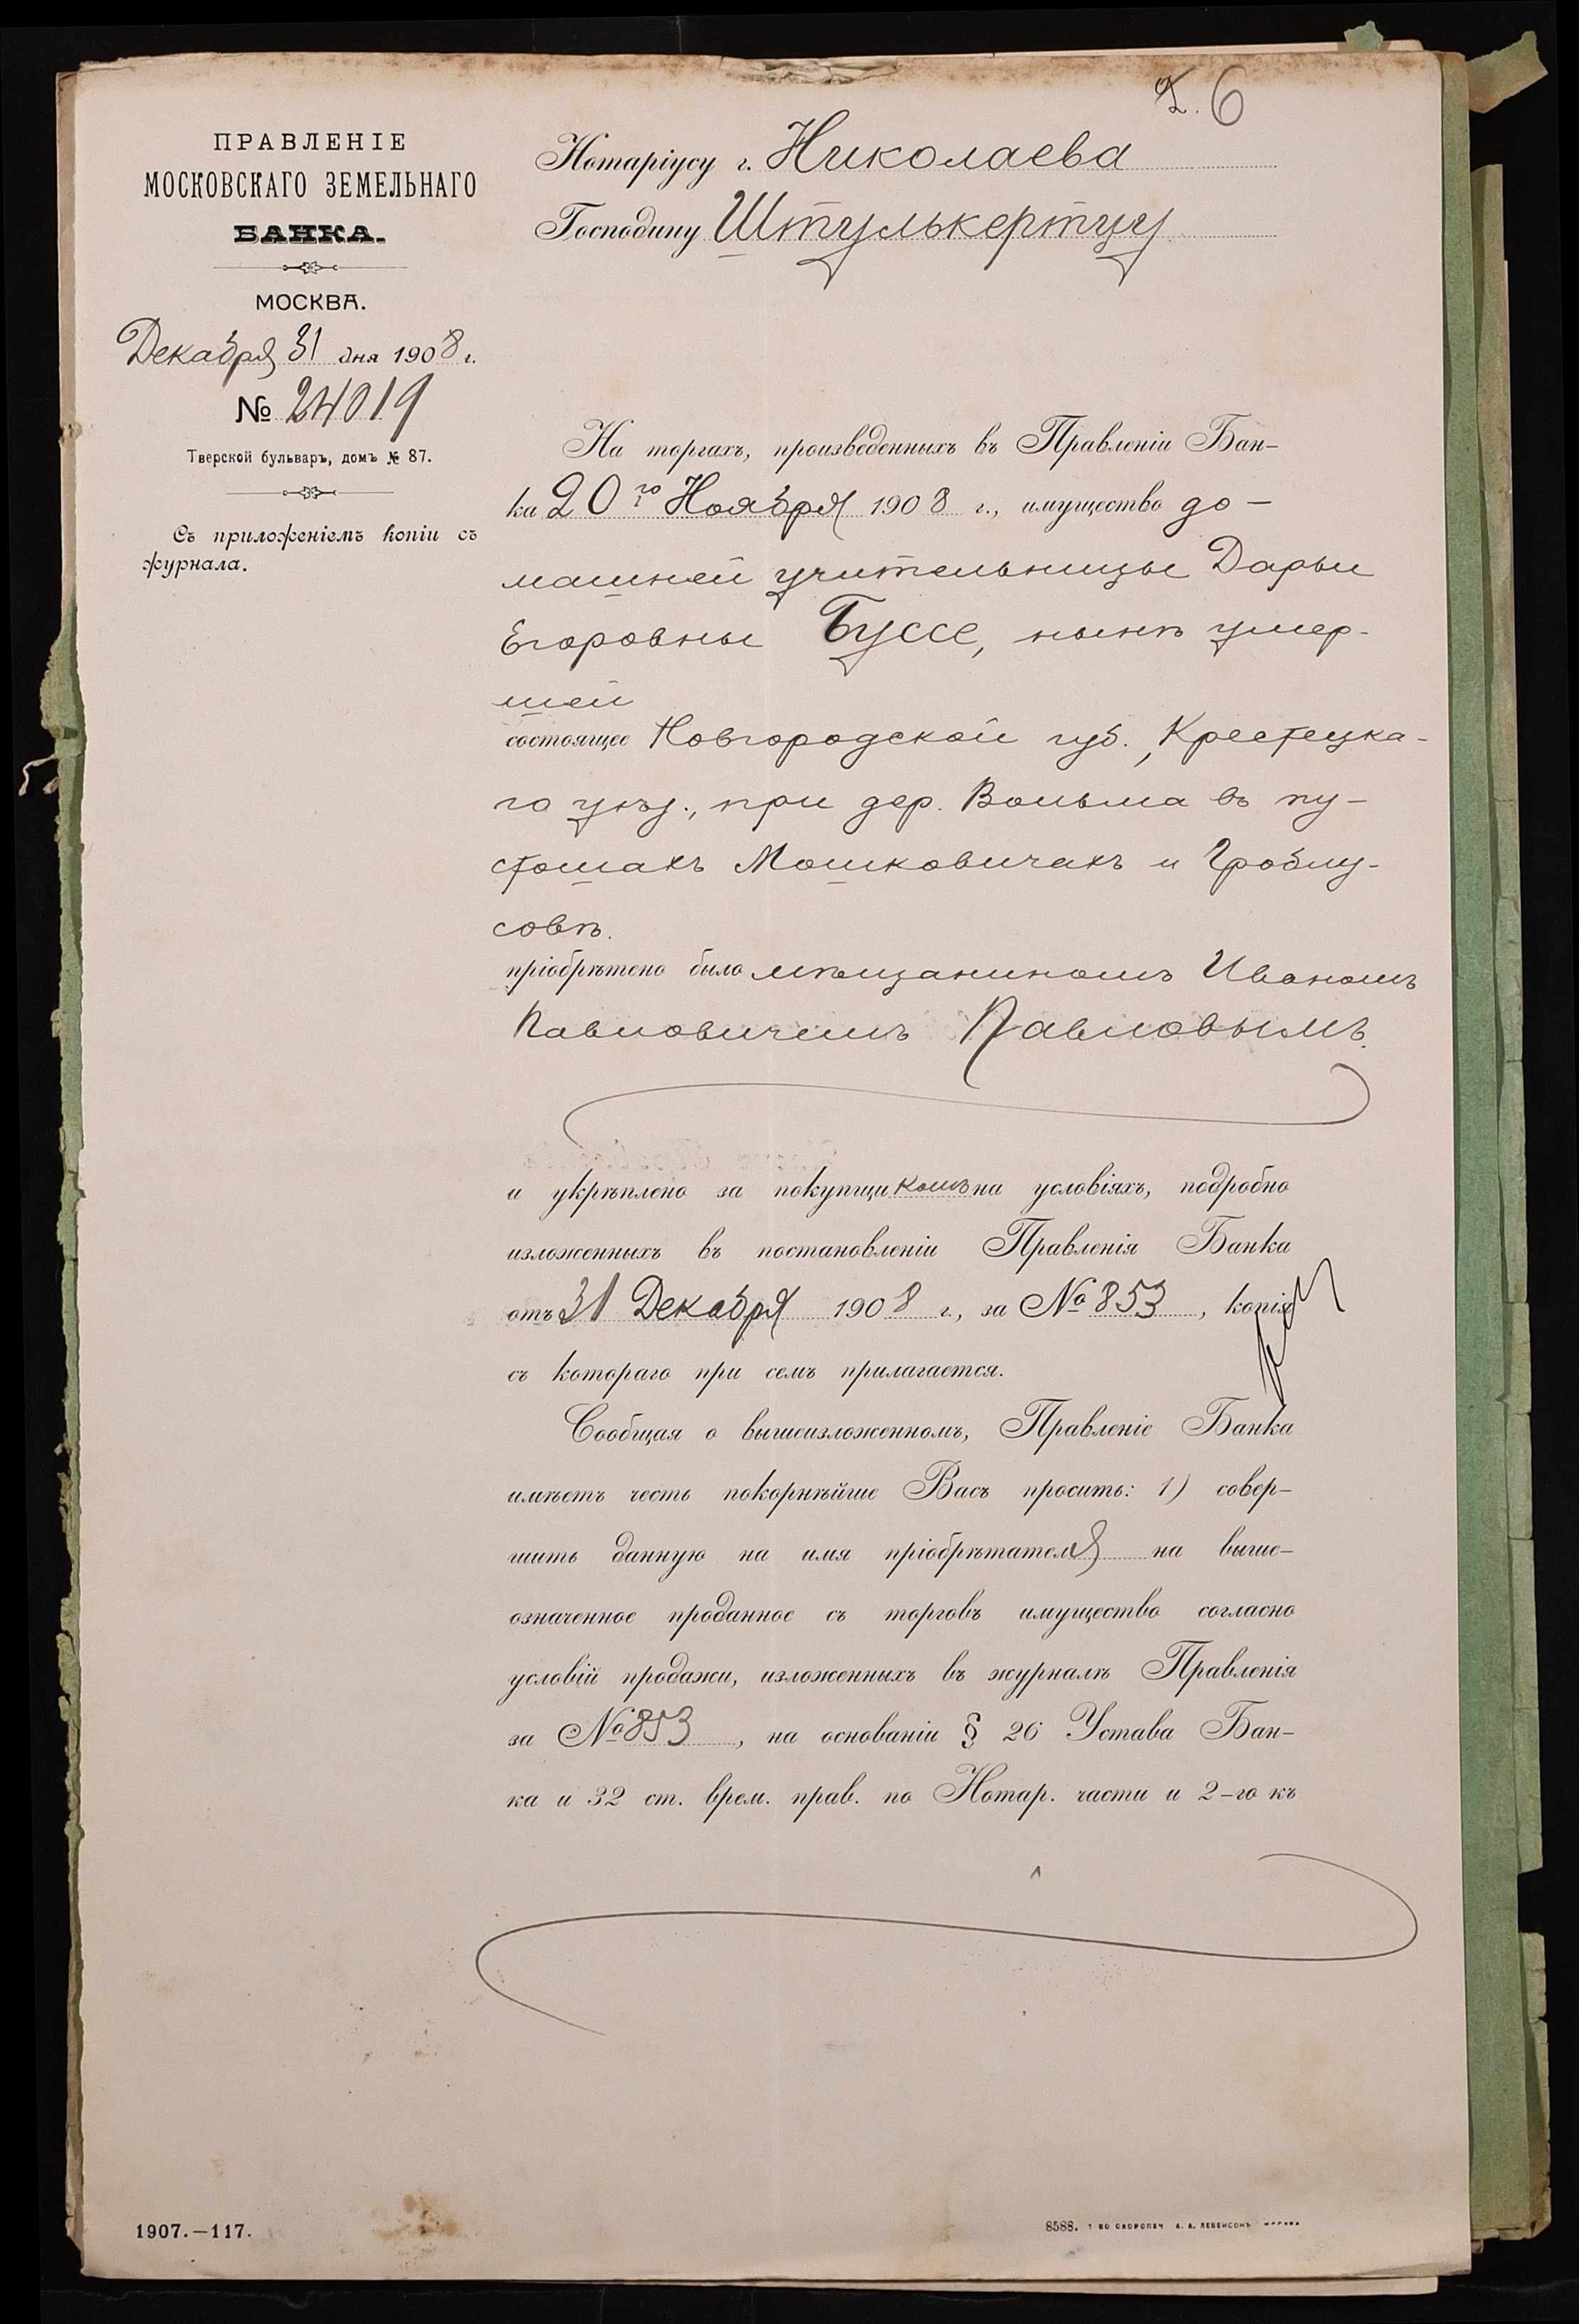 Д. 6
ПРАВЛЕНІЕ
МОСКОВСКАГО ЗЕМЕЛЬНАГО
БАНКА.
МОСКВА.
Декабря 31 дня 1908 г.
№ 24019
Тверской бульваръ, домъ № 87.
Съ приложеніемъ копіи съ
журнала.
Нотаріусу г. Николаева
Господину Штулькертцу
На торгахъ, произведенныхъ въ Правленіи Бан-
ка 20го Ноября 1908 г., имущество до-
машней учительницы Дарьи
Егоровны Буссе, нынѣ умер-
шей
состоящее Новгородской губ., Крестецка-
го уѣз., при дер. Вольма въ пу-
стошахъ Мошковичахъ и
совѣ.
пріобрѣтено было мѣщаниномъ Иваномъ
Павловичемъ Павловымъ.
и укрѣплено за покупщикомъ на условіяхъ, подробно
изложенныхъ въ постановленіи Правленія Банка
отъ 31 Декабря 1908 г., за № 853, копія
съ котораго при семъ прилагается.
Сообщая о вышеизложенномъ, Правленіе Банка
имѣетъ честь покорнѣйше Васъ просить: 1) совер-
шить данную на имя пріобрѣтателя на выше-
означенное проданное съ торговъ имущество согласно
условій продажи, изложенныхъ въ журналѣ Правленія
за № 853, на основаніи § 26 Устава Бан-
ка и 32 ст. врем. прав. по Нотар. части и 2-го къ
1907.—117.
8588. Т-ВО СКОРОПЕЧ. А. А. ЛЕВЕНСОНЪ МОСКВА